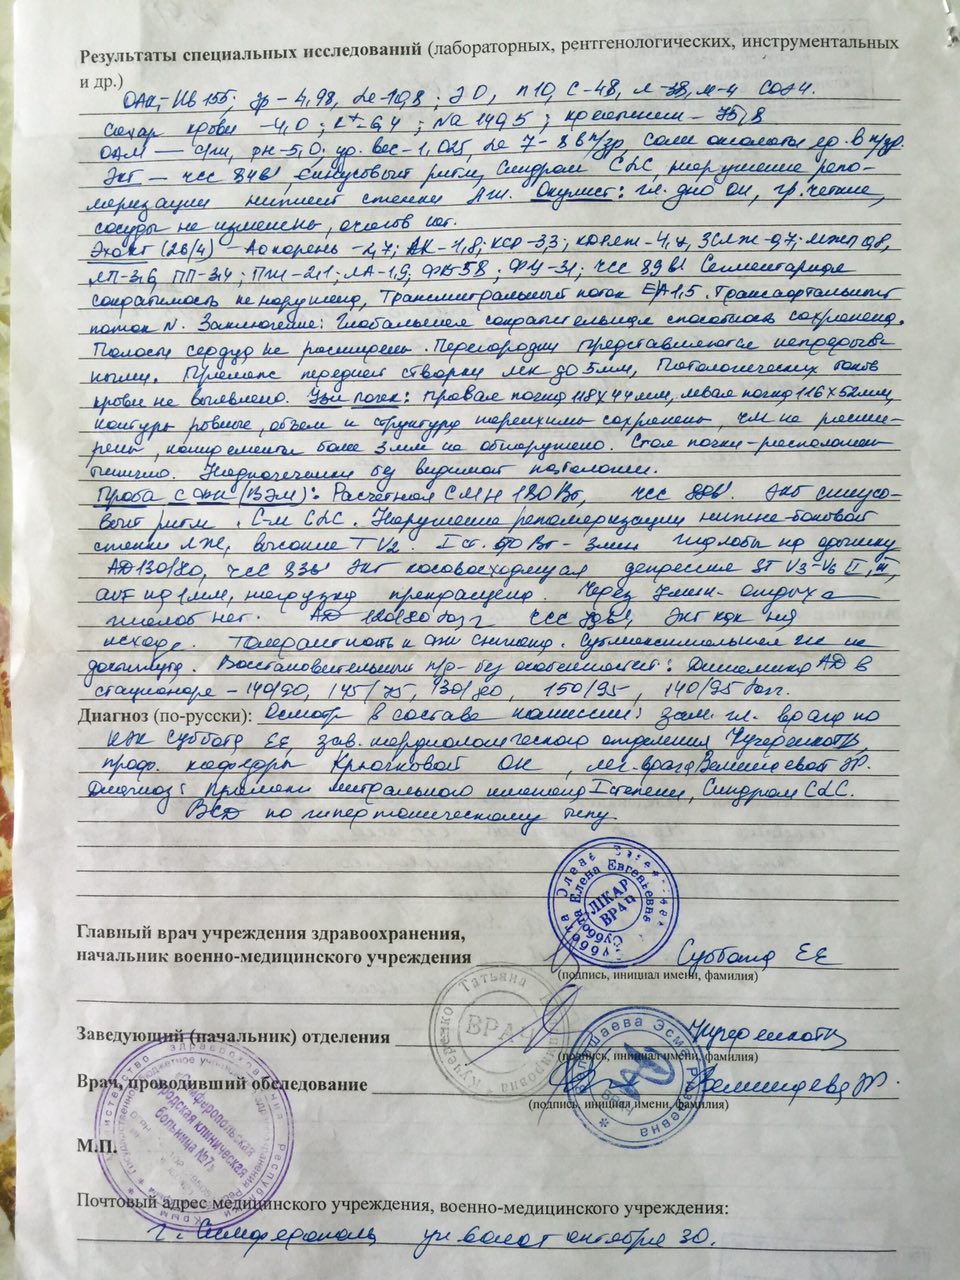 Результаты специальных исследований (лабораторных, рентгенологических, инструментальных
и др.)
ОАК-Hb 155; Эр-4,98, Le-10,8; Э0, п10, с-48, л-38, м-4 СОЭ 4.
Сахар крови -4,0; K+-6,4; Na 140,5; креатинин - 75,8
ОАМ — с/ж, рн-5,0; уд. вес-1,025, Le 7-8 в п/зр, соли оксалаты ед. в п/зр.
ЭКГ — чсс 84в1, синусовый ритм, синдром CLC, нарушение репо-
ляризации нижней стенки Окулист: гл. дно ОИ, гр. четкие,
сосуды не изменены, очагов нет.
ЭхоКГ (26/4) - Ао корень -2,7; АК-1,8; КСР-3,3; КДРлж-4, ЗСЛЖ-0,7; МЖП 0,8,
ЛП-3,6, ПП-3,4; ПЖ-2,1; ЛА-1,9; ФВ-58; ФУ-31; чсс 89в1 Сегментарная
сократимость не нарушена, Трансмитральный поток Е/А 1,5. Трансаортальный
поток N. Заключение: Глобальная сократительная способность сохранена.
Полости сердца не расширены. Перегородки представляются непрерыв-
ными. Пролапс передней створки МК до 5мм, Патологических токов
крови не выявлено. УЗИ почек: правая почка 118х44мм, левая почка 116х52мм,
контуры ровные, объем и структура паренхимы сохранены, ЧЛК не расши-
рены, конкрементов более 3мм не обнаружено. Стоя почки-расположены
типично. Надпочечники без видимой патологии.
Проба с ФН (ВЭМ): Расчетная СМН 180Вт, чсс ЭКГ синусо-
вый ритм. С-м CLC. Нарушение реполяризации нижне-боковой
стенки ЛЖ, высокие T V2. I ст. Вт - 3мин жалобы на одышку
АД130/80, чсс ЭКГ косовосходящая депрессия ST V3-V6 II, III,
avF на 1мм, нагрузка прекращена. Через 7мин. отдыха
жалоб нет. АД 120/80 ЧСС ЭКГ как на
исходе. Толерантность к ФН снижена. Субмаксимальная чсс не
достигнута. Восстановительный п/д-без особенностей: Динамика АД в
стационаре - 140/90, 145/75, 130/80, 150/95, 140/95
Диагноз (по-русски): Осмотр в составе комиссии: зам. гл. врача по
Суббота ЕЕ, зав. кардиологического отделения Кучеренко ТВ,
проф. кафедры Крючковой ОН, леч. врача Велишаевой ЭР.
Диагноз: Пролапс митрального клапана I степени, Синдром CLC.
ВСД по гипертоническому типу.
Суббота Елена Евгеньевна
ЛІКАР
ВРАЧ
Главный врач учреждения здравоохранения,
начальник военно-медицинского учреждения Суббота ЕЕ
(подпись, инициал имени, фамилия)
Кучеренко Татьяна
ВРАЧ
Заведующий (начальник) отделения Кучеренко ТВ
(подпись, инициал имени, фамилия)
Велишаева Эсма
ВРАЧ
Врач, проводивший обследование Велишаева ЭР.
(подпись, инициал имени, фамилия)
Симферопольская
городская клиническая
больница №7
М.П.
Почтовый адрес медицинского учреждения, военно-медицинского учреждения:
г. Симферополь ул 60 лет октября 30.